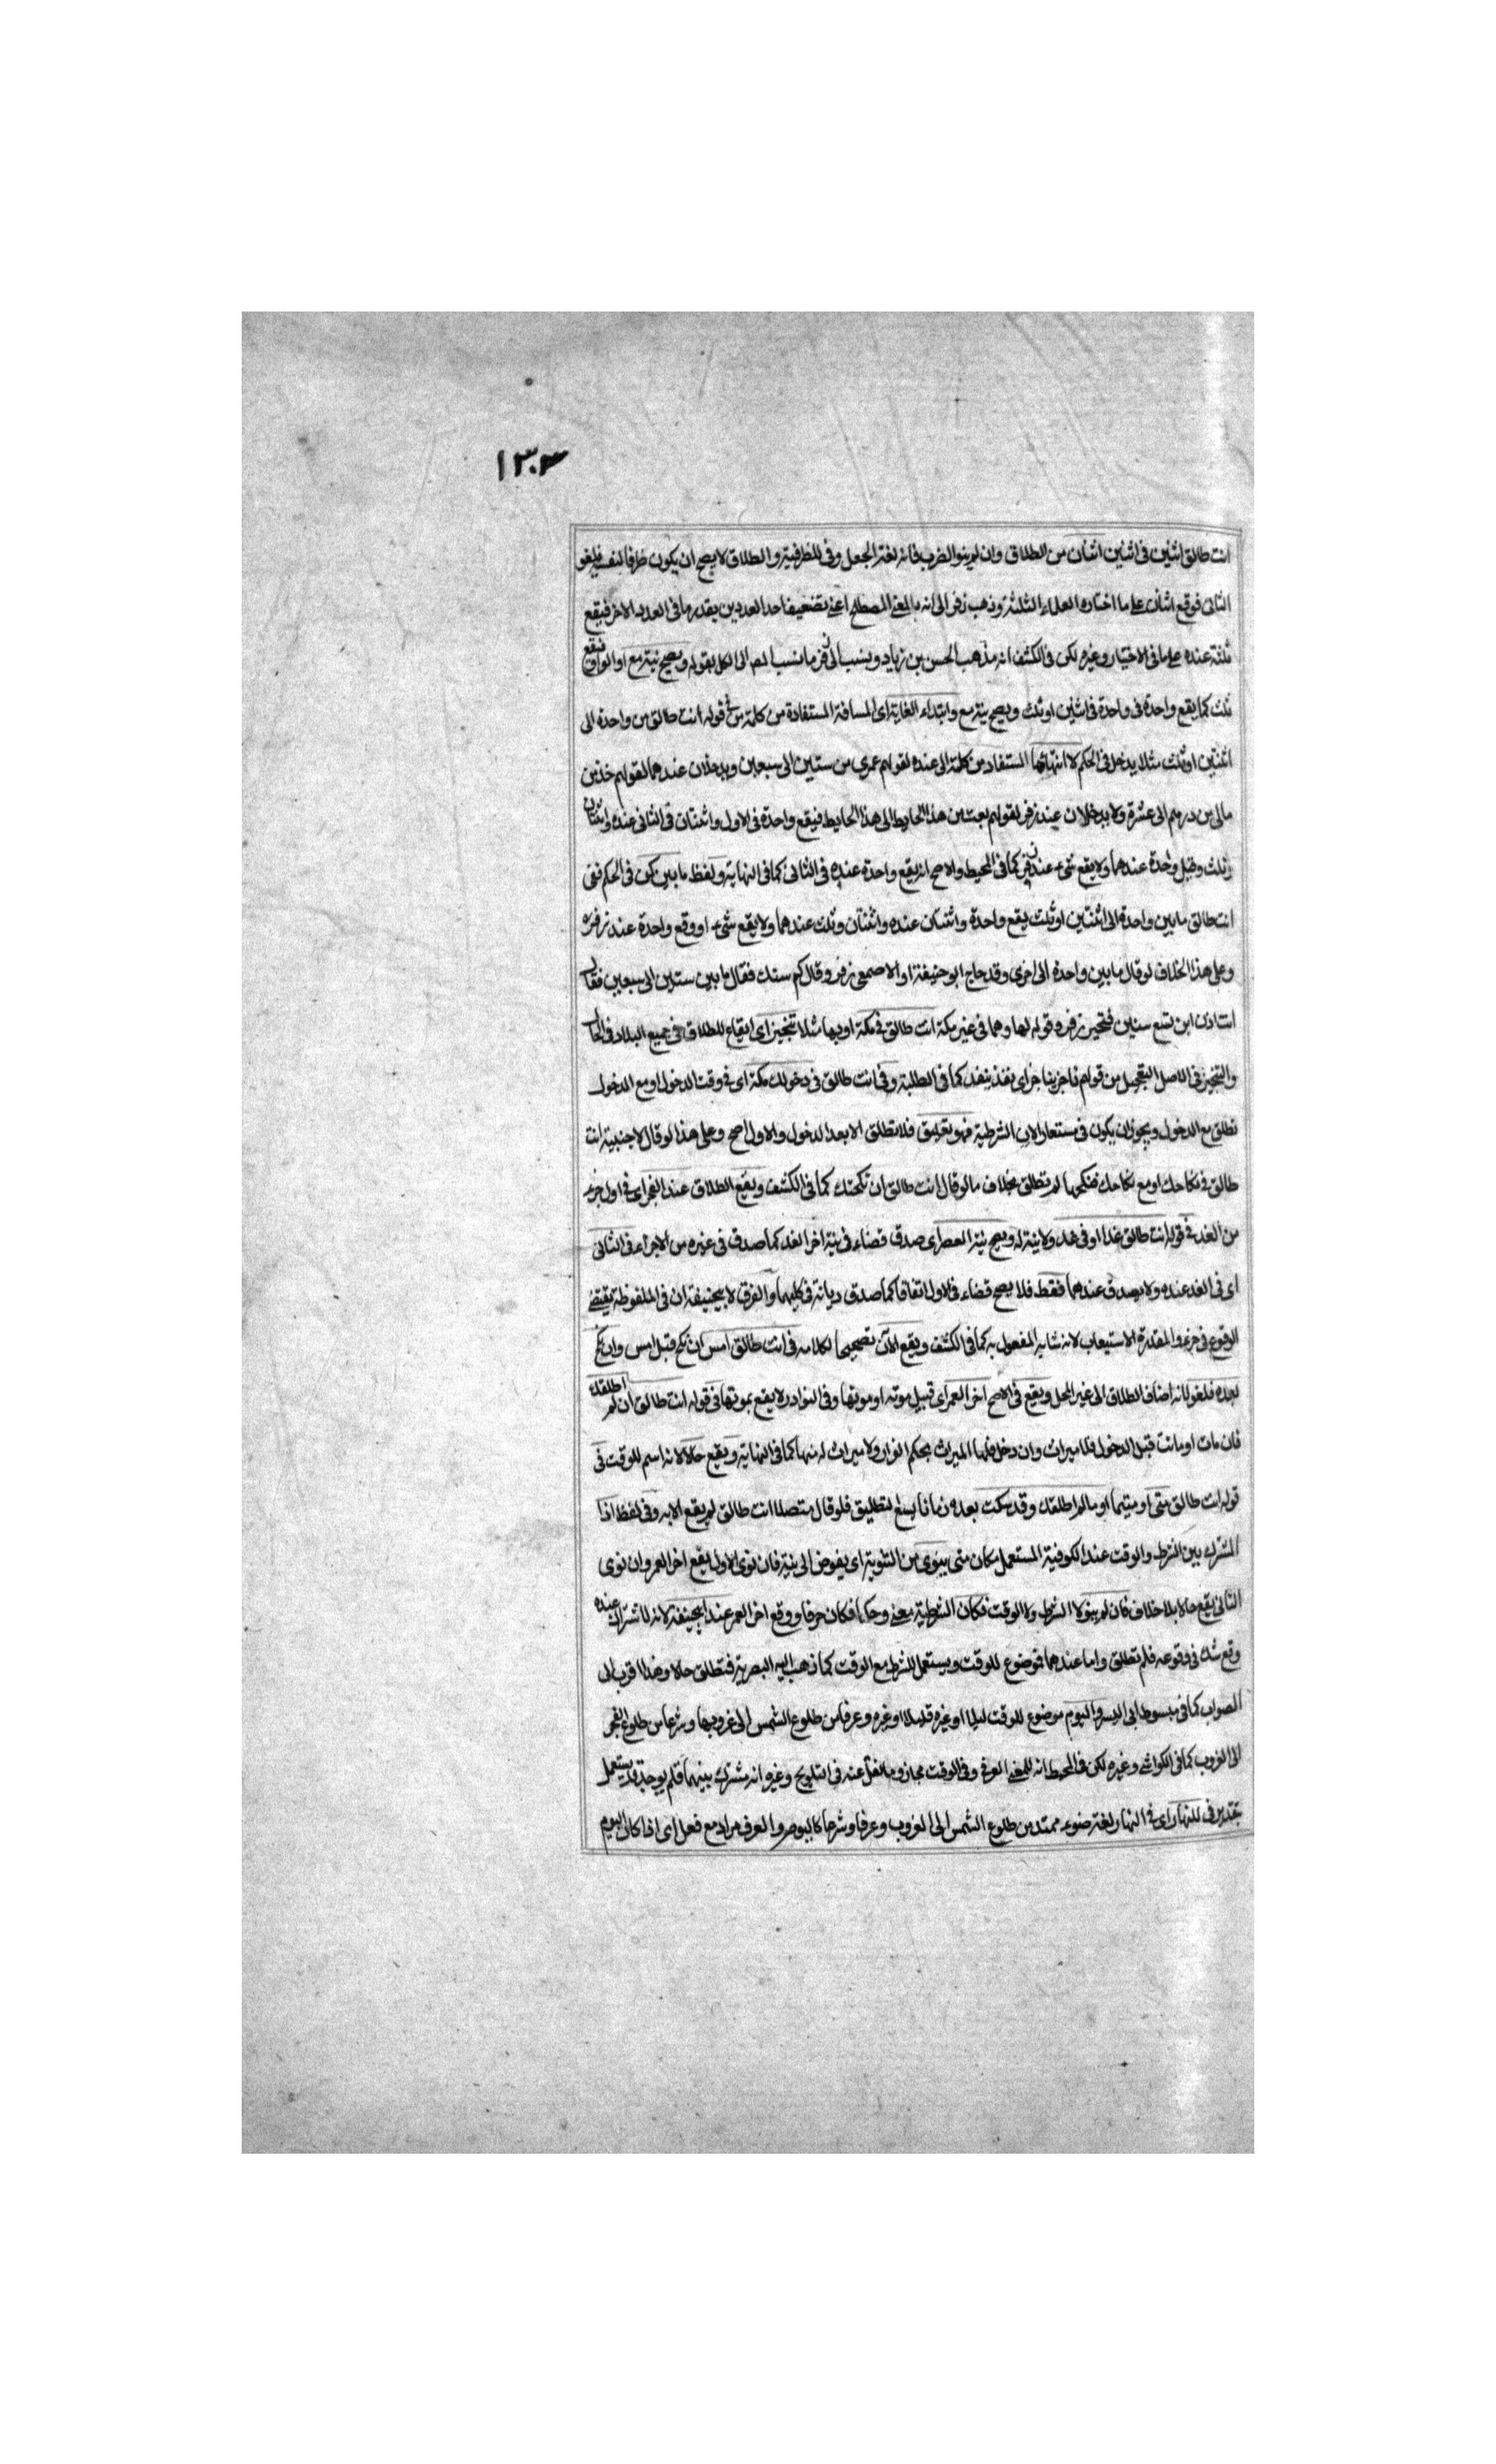 ١٣٠٣
انت طالق اثنين في اثنين اثنان من الطلاق وان لم ينو الضرب فانه لغة الجعل وفي للظرفية والطلاق لا يصح ان يكون ظرفا لنفسه فيلغو
الثاني فوقع اثنان على ما اختاره العلماء الثلثة وذهب زفر الى انه بالمعنى المصطلح اعني تضعيف احد العددين بقدر ما في العدد الاخر فيقع
ثلثة عنده على ما في الاختيار وغيره لكن في الكشف انه مذهب الحسن بن زياد وينسب الى زفر ما نسب المص الى الكل بقوله ويصح نية مع او الواو فيقع
ثلث كما يقع واحدة في واحدة في اثنين او ثلث ويصح نية مع وابتداء الغاية اى المسافة المستفادة من كلمة من في قوله انت طالق من واحدة الى
اثنتين او ثلث مثلا يدخل في الحكم لا انتهائها المستفاد من كلمة الى عنده لقولهم عمرى من ستين الى سبعين ويدخلان عندهما لقولهم خذ من
مالى من درهم الى عشرة ولا يدخلان عند زفر لقولهم بعت من هذا الحايط الى هذا الحايط فيقع واحدة في الاول واثنتان في الثاني عنده واثنتان
وثلث وقيل واحدة عندهما ولا يقع شىء عند زفر كما في المحيط والاصح انه يقع واحدة عنده في الثاني كما في النهاية ولفظ ما بين كمن في الحكم ففى
انت طالق ما بين واحدة الى اثنتين او ثلث يقع واحدة واثنتان عنده واثنتان وثلث عندهما ولا يقع شىء او وقع واحدة عند زفره
وعلى هذا الخلاف لو قال ما بين واحدة الى اخرى وقد حاج ابو حنيفة او الاصمعى زفر وقال كم سنك فقال ما بين ستين الى سبعين فقال
انت اذن ابن تسع سنين فتحير زفر وقوله لها وهما في غير مكة انت طالق في مكة او بها مثلا تنجيز اى ايقاع للطلاق في جميع البلاد في الحال
والتنجيز في الاصل التعجيل من قولهم ناجز يناجز اى نقد ينقد كما في الطلبة وفي انت طالق في دخولك مكة اى في وقت الدخول او مع الدخول
تطلق مع الدخول ويجوز ان يكون في مستعارا لان الشرطية فهو تعليق فلا تطلق الا بعد الدخول والاول اصح وعلى هذا لو قال لاجنبية انت
طالق في نكاحك او مع نكاحك فنكحها لم تطلق بخلاف ما لو قال انت طالق ان نكحتك كما في الكشف ويقع الطلاق عند الفجر اى في اول جزء
من الغد في قوله انت طالق غدا او في غد ولا نية له ويصح نية العصر اى صدق قضاء في نية اخر الغد كما صدق في غيره من الاجزاء في الثاني
اى في الغد عنده ولا يصدق عندهما فقط فلا يصح قضاء في الاول اتفاقا كما صدق ديانة في كليهما والفرق لابيحنيفة ان في الملفوظة يقتضى
الوقوع في جزء والمقدرة الاستيعاب لانه شابه المفعول به كما في الكشف ويقع الآن تصحيحا لكلامه في انت طالق امس ان نكح قبل امس وان نكح
بعده فلغو لانه اضاف الطلاق الى غير المحل ويقع في الاصح اخر العمر اى قبيل موته او موتها وفي النوادر لا يقع بموتها في قوله انت طالق ان لم اطلقك
فان مات او ماتت قبل الدخول فلا ميراث وان دخل فلها الميراث بحكم الفرار ولا ميراث له منها كما في النهاية ويقع حالا لانه اسم للوقت في
قوله انت طالق متى او متيما او ما لم اطلقك وقد سكت بعده زمانا يسع لتطليق فلو قال متصلا انت طالق لم يقع الا به وفي لفظ اذا
المشترك بين الشرط والوقت عند الكوفية المستعمل مكان متى ينوى من التنوية اى يفوض الى نية فان نوى الاول يقع اخر العمر وان نوى
الثاني يقع حالا بلا خلاف فان لم ينو لا الشرط ولا الوقت فكان الشرطية معنى وحكما فكان حرفا ووقع اخر العمر عند ابيحنيفة لانه لما اشترك عنده
وقع شك في وقوعه فلم تطلق واما عندهما فموضوع للوقت ويستعمل للشرط مع الوقت كما ذهب اليه البصرية فتطلق حالا وهذا اقرب الى
الصواب كما في مبسوط ابى اليسر واليوم موضوع للوقت ليلا او غيره قليلا او غيره وعرفا من طلوع الشمس الى غروبها وشرعا من طلوع الفجر
الى الغروب كما في الكواشى وغيره لكن في المحيط انه للمعنى العرفى وفي الوقت مجاز وما نقل عنه في التلويح وغيره انه مشترك بينهما فلم يوجد قد يستعمل
في للنهار اى في النهار لغة ضوء ممتد من طلوع الشمس الى الغروب وعرفا وشرعا كاليوم والعرف مراد مع فعل اى اذا كان اليوم